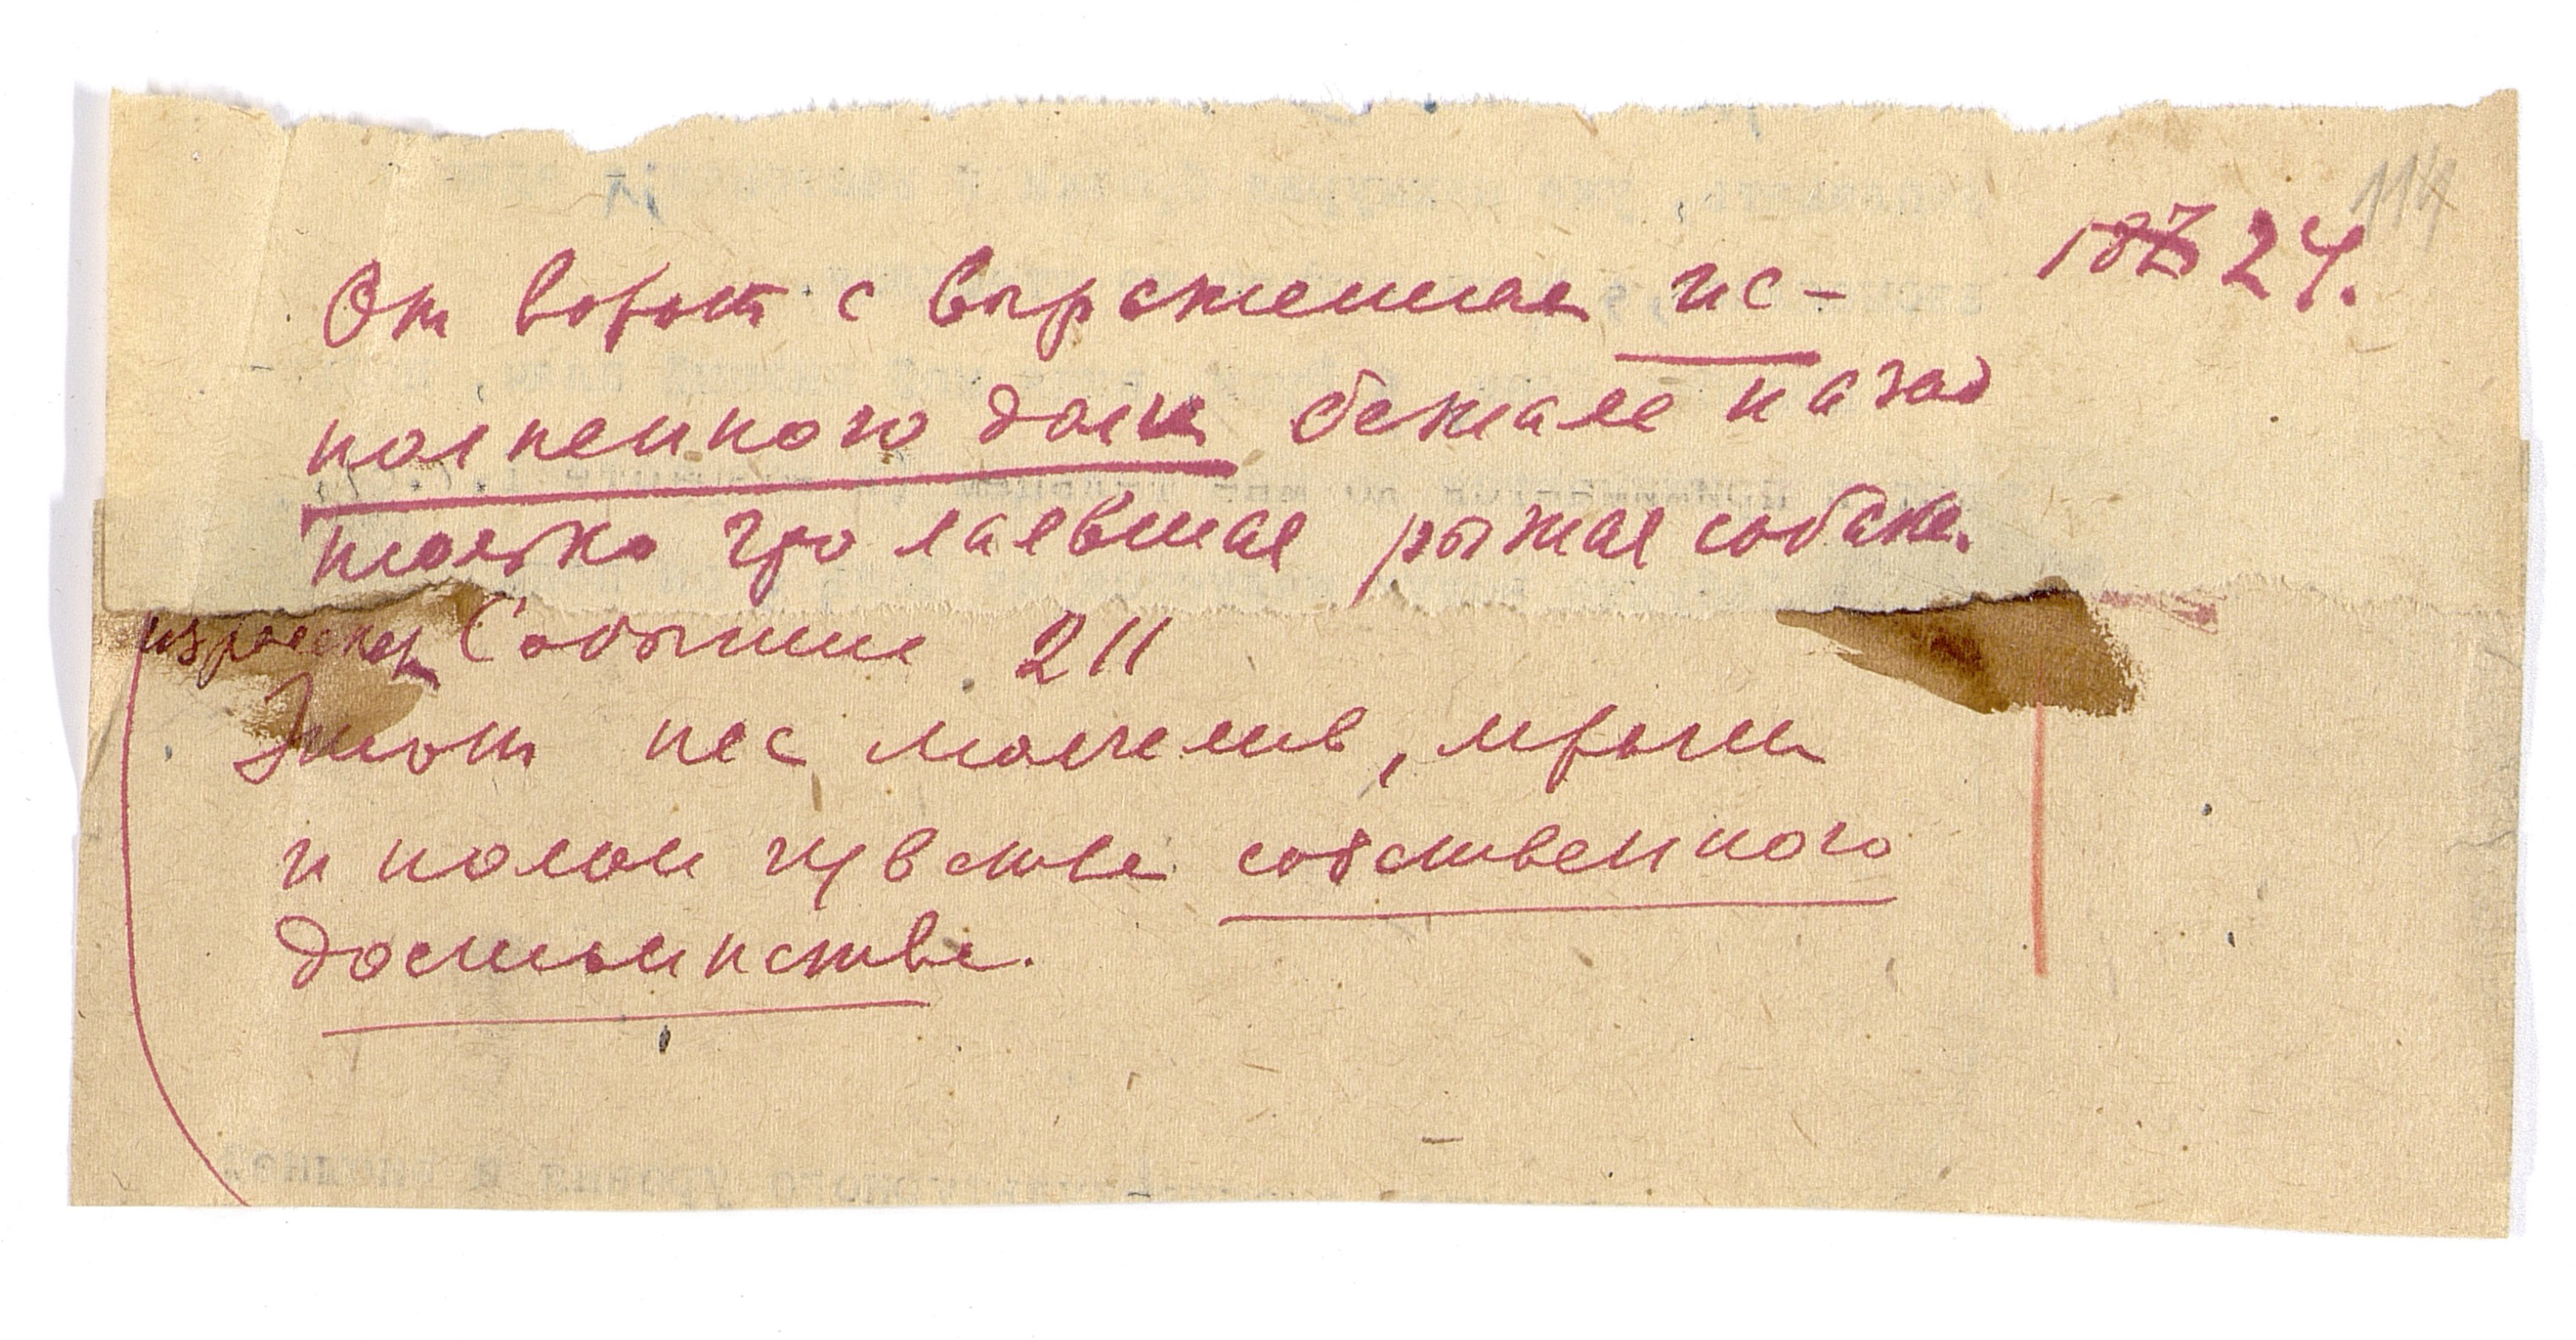 114
187 24.
От ворот с выражением ис-
полненного долга бежала назад
только что лаявшая рыжая собака.
События 211
Этот пес молчалив, мрачен
и полон чувства собственного
достоинства.